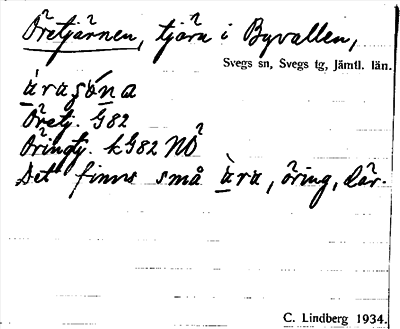 Öretjärnen, tjärn i Byvallen,
Svegs sn, Svegs tg, Jämtl. län.
Öretj. G82
Öringtj. kG82 NO
Det finns små ära, öring, där.
C. Lindberg 1934.